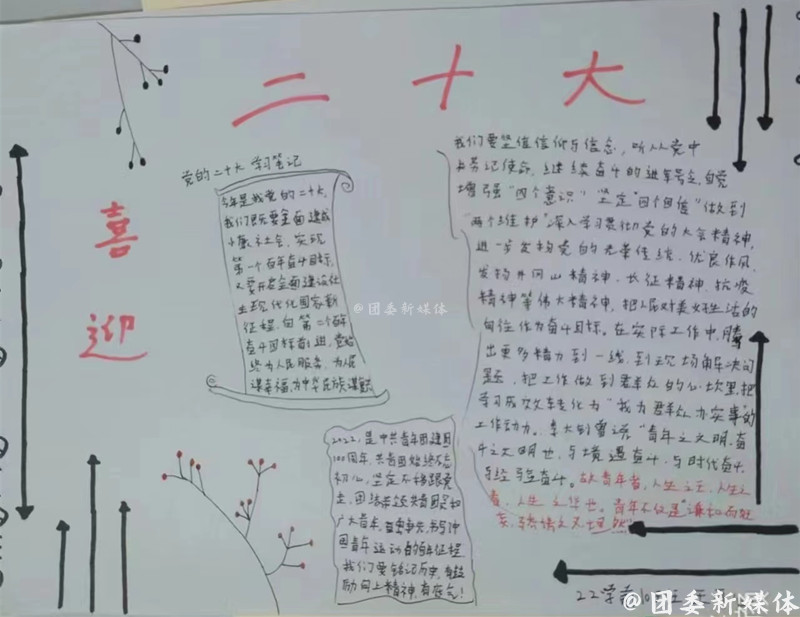 二十大
喜
迎
党的二十大学习笔记
今年是我党的二十大,
我们既要全面建成
小康社会,实现
第一个百年奋斗目标,
又要开启全面建设社
主现代化国家新
征程,向第二个百年
奋斗目标前进,党始
终为人民服务,为人民
谋幸福,为中华民族谋
@团委新媒体
2022,是中共青年团建团
100周年,共青团始终不忘
初心,坚定不移跟党
走,团结带领共青团员和
广大青年,书写中
国青年运动的百年征程,
我们要铭记历史,
励向上精神,有底气!
我们要坚信仰与信念,听从党中
央号记使命,继续奋斗的进军号令,自觉
增强"四个意识"坚定"四个自信"做到
"两个维护"深入学习贯彻党的大会精神,
进一步发扬党的光荣传统、优良作风,
发扬井冈山精神、长征精神、抗疫
精神等伟大精神,把人民对美好生活的
向往作为奋斗目标。在实际工作中,腾
出更多精力到一线,到现场解决问
题,把工作做到群众的心坎里,把
学习成效转化为"我为群众办实事"的
工作动力。李大钊曾说"青年之文明,奋
斗之文明也,与境遇奋斗,与时代奋斗,
与经验奋斗。故青年者,人生之王,人生之
春,人生之华也。青年不仅是
22学前
@团委新媒体